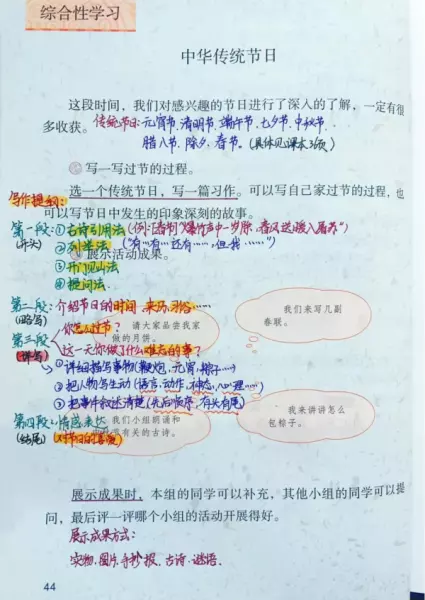 综合性学习
中华传统节日
这段时间，我们对感兴趣的节日进行了深入的了解，一定有很
多收获。传统节日:元宵节、清明节、端午节、七夕节、中秋节、
腊八节、除夕、春节。(具体见课本3页)
写一写过节的过程。
写作提纲:
选一个传统节日，写一篇习作。可以写自己家过节的过程，也
可以写节日中发生的印象深刻的故事。
第一段:①古诗引用法(例:"爆竹声中一岁除，春风送暖入屠苏")
(开头) ②列举法 ("有…有…还有……，但我……")
展示活动成果。
③开门见山法
④提问法.
第二段:介绍节日的时间、来历、习俗……
(略写)
我们来写几副
春联。
第三段 你怎么过节?
请大家品尝我家
做的月饼。
(详写) 这一天你做了什么难忘的事?
①详细描写事物(鞭炮、元宵、粽子…)
②把人物写生动(语言、动作、神态、心理…)
③把事件叙述清楚(先后顺序、有头有尾)
我来讲讲怎么
包粽子。
第四段:情感表达
我们小组朗诵和
(结尾) 对节日的喜爱
节有关的古诗。
展示成果时，本组的同学可以补充，其他小组的同学可以提
问，最后评一评哪个小组的活动开展得好。
展示成果方式:
实物、图片、手抄报、古诗、谜语.
44